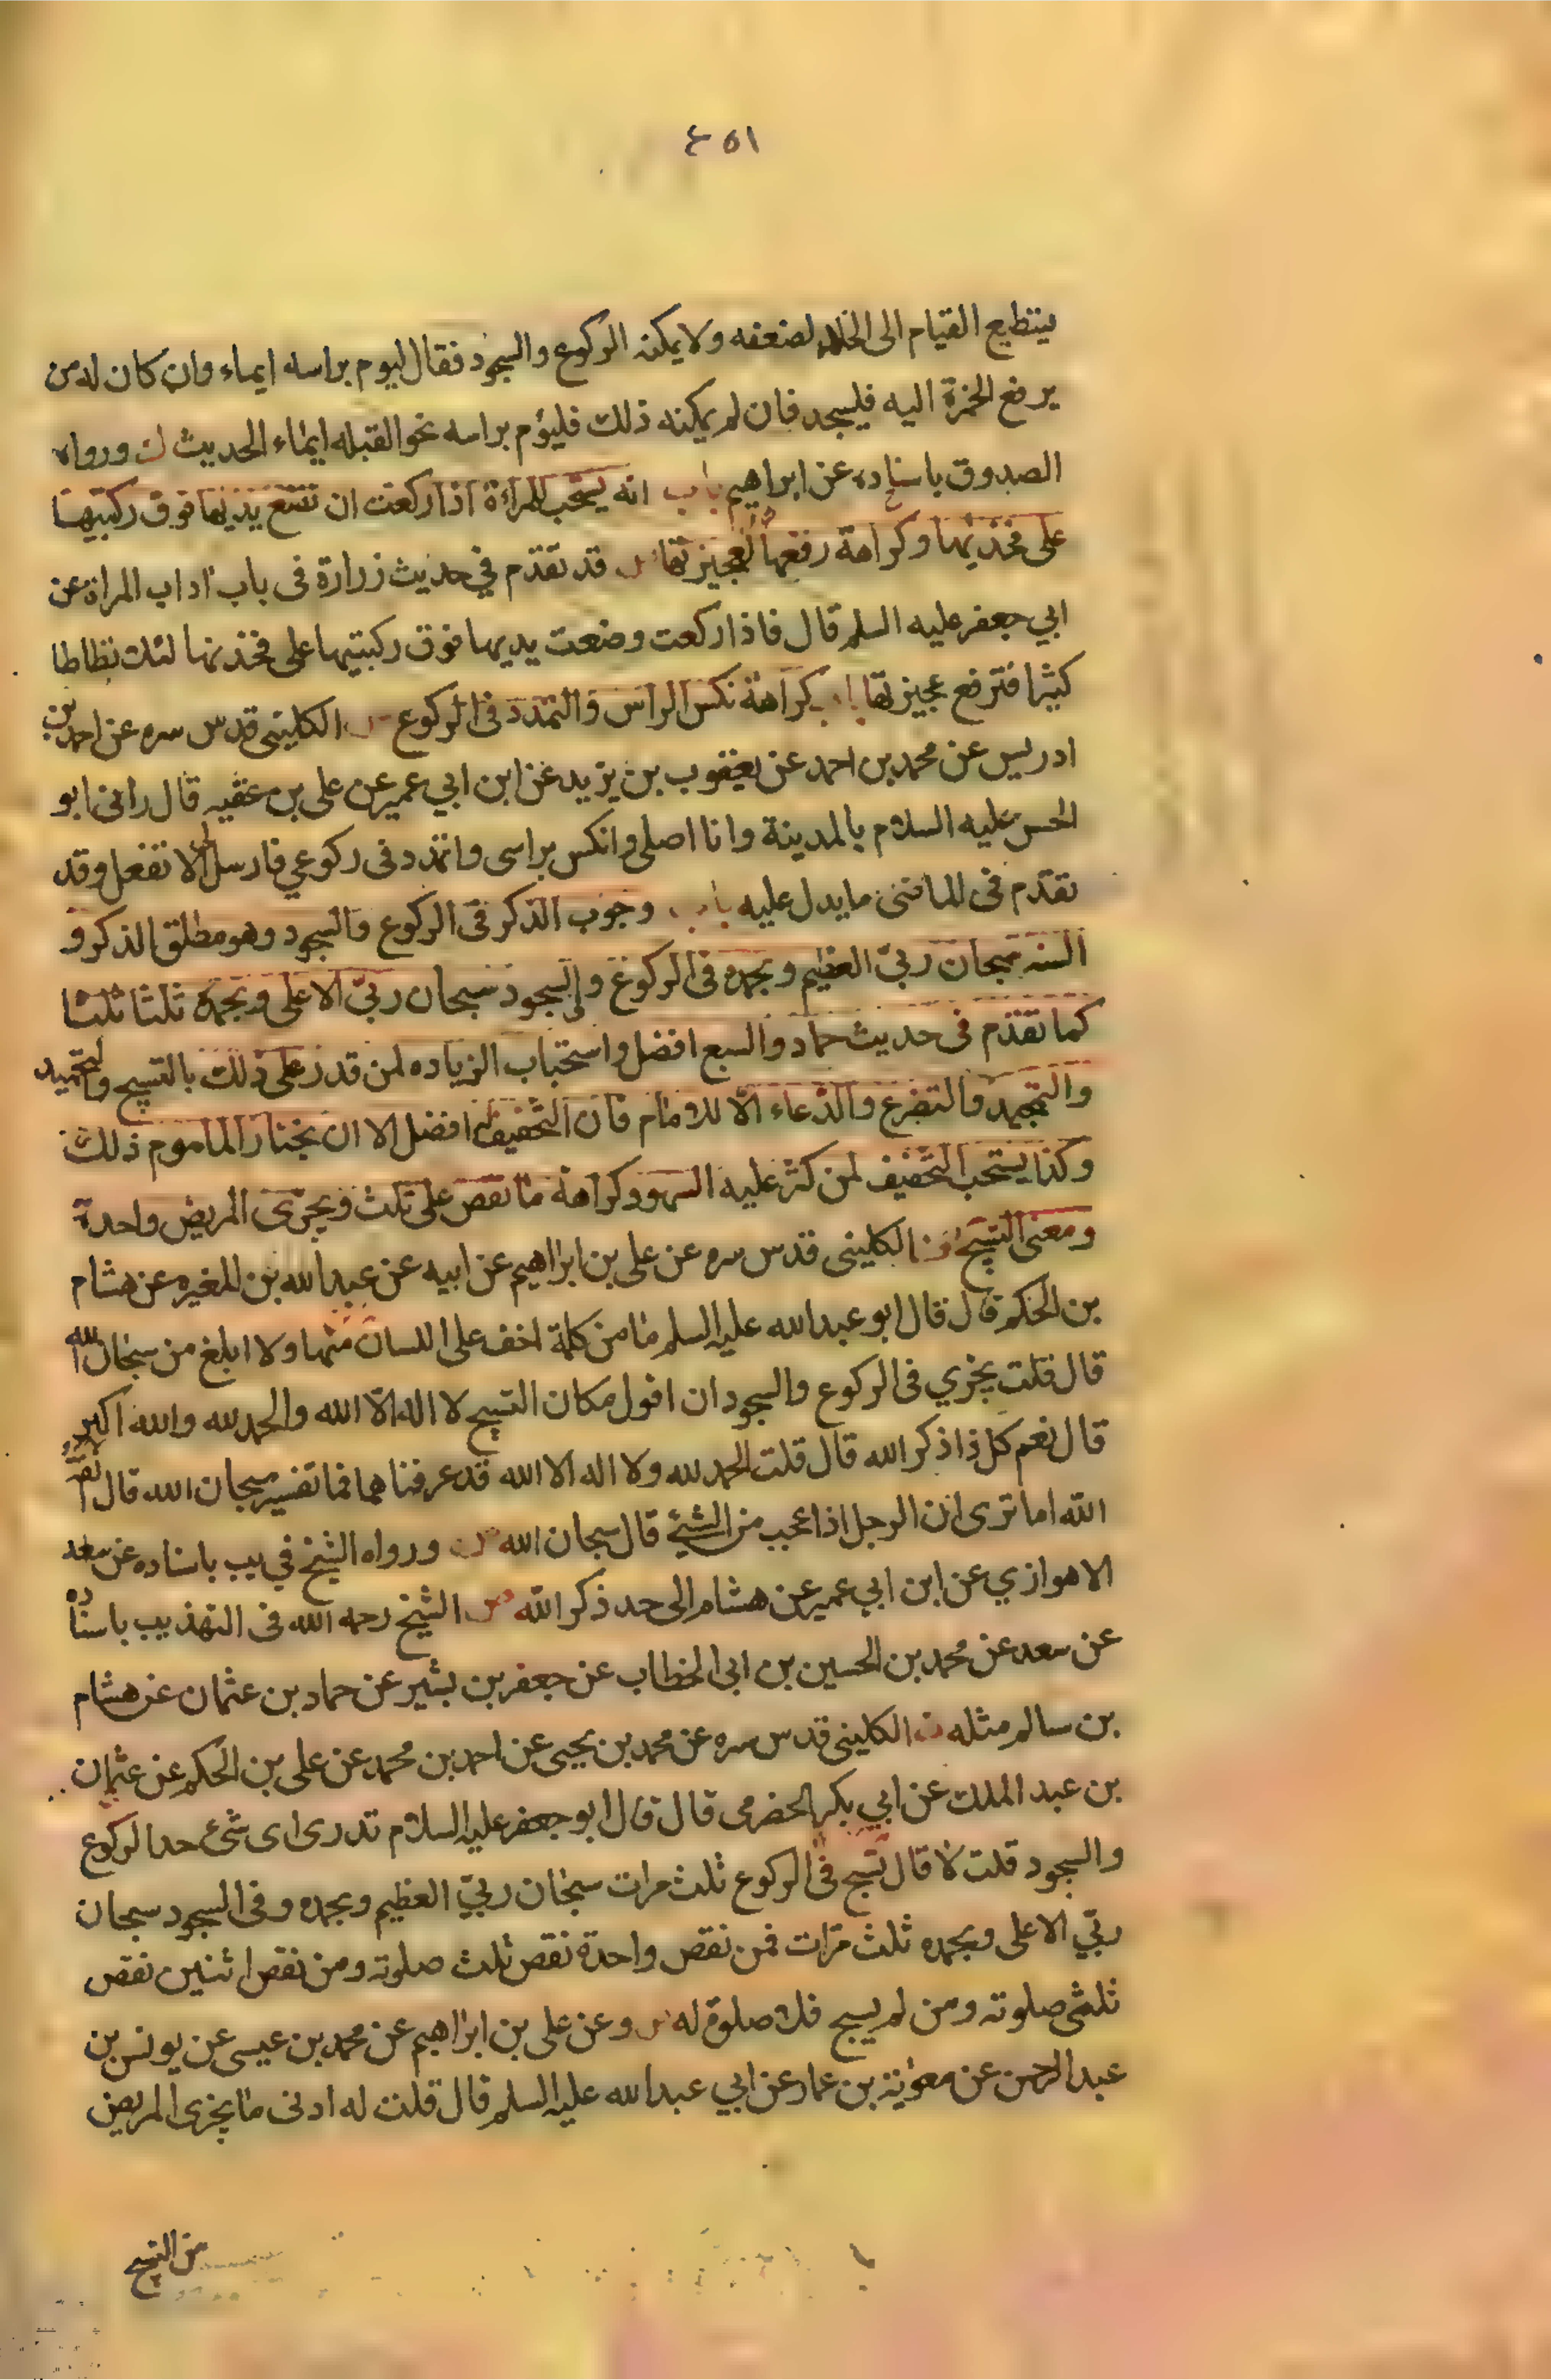 ٤٥١
يستطيع القيام الى الخلاء لضعفه ولا يمكنه الركوع والسجود فقال ليوم براسه ايماء وان كان له من
يرفع الخمرة اليه فليسجد فان لم يمكنه ذلك فليؤم براسه نحو القبله ايماء الحديث ورواه
الصدوق باسناده عن ابراهيم باب انه يستحب للمراة اذا ركعت ان تضع يديها فوق ركبتيها
على فخذيها وكراهة رفعها لعجيزتها قد تقدم في حديث زرارة فى باب اداب المراة عن
ابي جعفر عليه السلم قال فاذا ركعت وضعت يديها فوق ركبتيها على فخذيها لئلا تطاطا
كثيرا فترفع عجيزتها باب كراهة نكس الراس والتمدد فى الركوع الكلينى قدس سره عن احمد بن
ادريس عن محمد بن احمد عن يعقوب بن يزيد عن ابن ابي عمير عن على بن عقبه قال رانى ابو
الحسن عليه السلام بالمدينة وانا اصلى وانكس براسى واتمدد فى ركوعي فارسل الى لا تفعل وقد
تقدم فى الماضى ما يدل عليه باب وجوب الذكر فى الركوع والسجود وهو مطلق الذكر و
السنه سبحان ربي العظيم وبحمده فى الركوع والسجود سبحان ربي الاعلى وبحمده ثلثا ثلثا
كما تقدم فى حديث حماد والسبع افضل واستحباب الزياده لمن قدر على ذلك بالتسبيح والتحميد
والتمجيد والتضرع والدعاء الا للامام فان التخفيف له افضل الا ان يختار الماموم ذلك
وكذا يستحب التخفيف لمن كثر عليه السهو وكراهة ما نقص على ثلث ويجزى المريض واحدة
ومعنى التسبيح الكلينى قدس سره عن على بن ابراهيم عن ابيه عن عبد الله بن المغيره عن هشام
بن الحكم قال قال ابو عبد الله عليه السلم ما من كلمة اخف على اللسان منها ولا ابلغ من سبحان الله
قال قلت يجزي فى الركوع والسجود ان اقول مكان التسبيح لا اله الا الله والحمد لله والله اكبر
قال نعم كل ذا ذكر الله قال قلت الحمد لله ولا اله الا الله قد عرفناهما فما تفسير سبحان الله قال انفة لله
الله اما ترى ان الرجل اذا عجب من الشئ قال سبحان الله ورواه الشيخ في يب باسناده عن سعد
الاهوازي عن ابن ابي عمير عن هشام الى حد ذكر الله الشيخ رحمه الله فى التهذيب باسناده
عن سعد عن محمد بن الحسين بن ابى الخطاب عن جعفر بن بشير عن حماد بن عثمان عن هشام
بن سالم مثله الكلينى قدس سره عن محمد بن يحيى عن احمد بن محمد عن على بن الحكم عن عثمان
بن عبد الملك عن ابي بكر الحضرمى قال قال ابو جعفر عليه السلام تدرى اى شئ حد الركوع
والسجود قلت لا قال تسبح فى الركوع ثلث مرات سبحان ربي العظيم وبحمده وفى السجود سبحان
ربي الاعلى وبحمده ثلث مرات فمن نقص واحدة نقص ثلث صلوته ومن نقص اثنين نقص
ثلثى صلوته ومن لم يسبح فلا صلوة له وعن على بن ابراهيم عن محمد بن عيسى عن يونس بن
عبد الرحمن عن معوية بن عمار عن ابي عبد الله عليه السلم قال قلت له ادنى ما يجزى المريض
من التسبيح